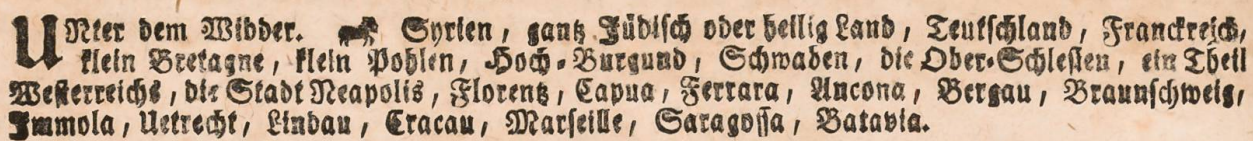 UNter dem Widder. Syrien, gantz Jüdisch oder heilig Land, Teutschland, Franckreich,
klein Bretagne, klein Pohlen, Hoch-Burgund, Schwaben, die Ober-Schlesien, ein Theil
Westerreichs, die Stadt Neapolis, Florentz, Capua, Ferrara, Ancona, Bergau, Braunschweig,
Immola, Uetrecht, Lindau, Cracau, Marseille, Saragossa, Batavia.